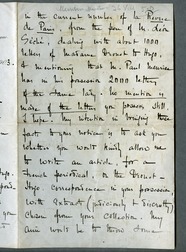 in the current number of la Revue
de Paris, from the pen of M. Léon
Séché, dealing with about 1000
letters of Madame Drouet to Hugo,
& mentions that M. Paul Meurice
has in his possession 2000 letters
of the same lady. No mention is
made of the letters you possess still
I hope. My intention in bringing this
fact to your notice is to ask you
whether you would kindly allow me
to write an article for a
French periodical on the Drouet-
Hugo correspondence in your possession,
with extract (judiciously & discreetly)
chosen from your collection. My
aim would be to throw some